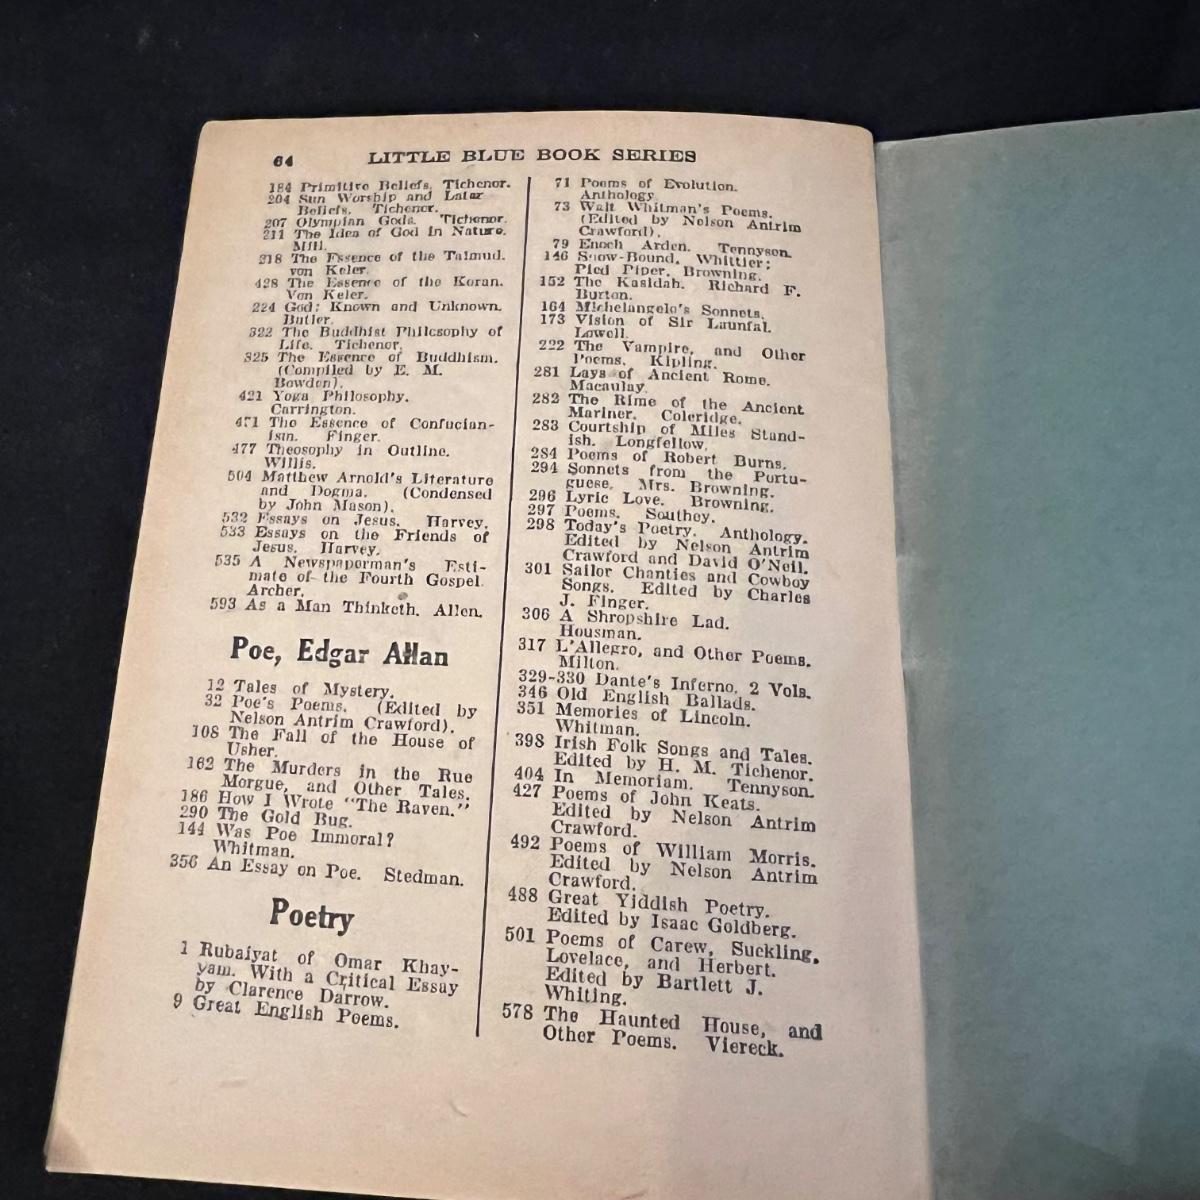 64 LITTLE BLUE BOOK SERIES
184 Primitive Beliefs. Tichenor.
204 Sun Worship and Later
Beliefs. Tichenor.
207 Olympian Gods. Tichenor.
211 The Idea of God in Nature.
Mill.
218 The Essence of the Talmud.
von Keler.
428 The Essence of the Koran.
Von Keler.
224 God: Known and Unknown.
Butler.
322 The Buddhist Philosophy of
Life. Tichenor.
325 The Essence of Buddhism.
(Compiled by E. M.
Bowden).
421 Yoga Philosophy.
Carrington.
471 The Essence of Confucian-
ism. Finger.
477 Theosophy in Outline.
Willis.
504 Matthew Arnold's Literature
and Dogma. (Condensed
by John Mason).
532 Essays on Jesus. Harvey.
533 Essays on the Friends of
Jesus. Harvey.
535 A Newspaperman's Esti-
mate of the Fourth Gospel.
Archer.
593 As a Man Thinketh. Allen.
Poe, Edgar Allan
12 Tales of Mystery.
32 Poe's Poems. (Edited by
Nelson Antrim Crawford).
108 The Fall of the House of
Usher.
162 The Murders in the Rue
Morgue, and Other Tales.
186 How I Wrote "The Raven."
290 The Gold Bug.
144 Was Poe Immoral?
Whitman.
356 An Essay on Poe. Stedman.
Poetry
1 Rubaiyat of Omar Khay-
yam. With a Critical Essay
by Clarence Darrow.
9 Great English Poems.
71 Poems of Evolution.
Anthology.
73 Walt Whitman's Poems.
(Edited by Nelson Antrim
Crawford).
79 Enoch Arden. Tennyson.
146 Snow-Bound. Whittier;
Pied Piper. Browning.
152 The Kasidah. Richard F.
Burton.
164 Michelangelo's Sonnets.
173 Vision of Sir Launfal.
Lowell.
222 The Vampire, and Other
Poems. Kipling.
281 Lays of Ancient Rome.
Macaulay.
282 The Rime of the Ancient
Mariner. Coleridge.
283 Courtship of Miles Stand-
ish. Longfellow.
284 Poems of Robert Burns.
294 Sonnets from the Portu-
guese. Mrs. Browning.
296 Lyric Love. Browning.
297 Poems. Southey.
298 Today's Poetry. Anthology.
Edited by Nelson Antrim
Crawford and David O'Neil.
301 Sailor Chanties and Cowboy
Songs. Edited by Charles
J. Finger.
306 A Shropshire Lad.
Housman.
317 L'Allegro, and Other Poems.
Milton.
329-330 Dante's Inferno. 2 Vols.
346 Old English Ballads.
351 Memories of Lincoln.
Whitman.
398 Irish Folk Songs and Tales.
Edited by H. M. Tichenor.
404 In Memoriam. Tennyson.
427 Poems of John Keats.
Edited by Nelson Antrim
Crawford.
492 Poems of William Morris.
Edited by Nelson Antrim
Crawford.
488 Great Yiddish Poetry.
Edited by Isaac Goldberg.
501 Poems of Carew, Suckling,
Lovelace, and Herbert.
Edited by Bartlett J.
Whiting.
578 The Haunted House, and
Other Poems. Viereck.